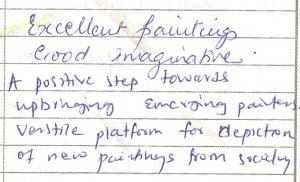 Excellent paintings
Good imaginative.
A positive step towards
upbringing emerging painters.
Verstile platform for depiction
of new paintings from society